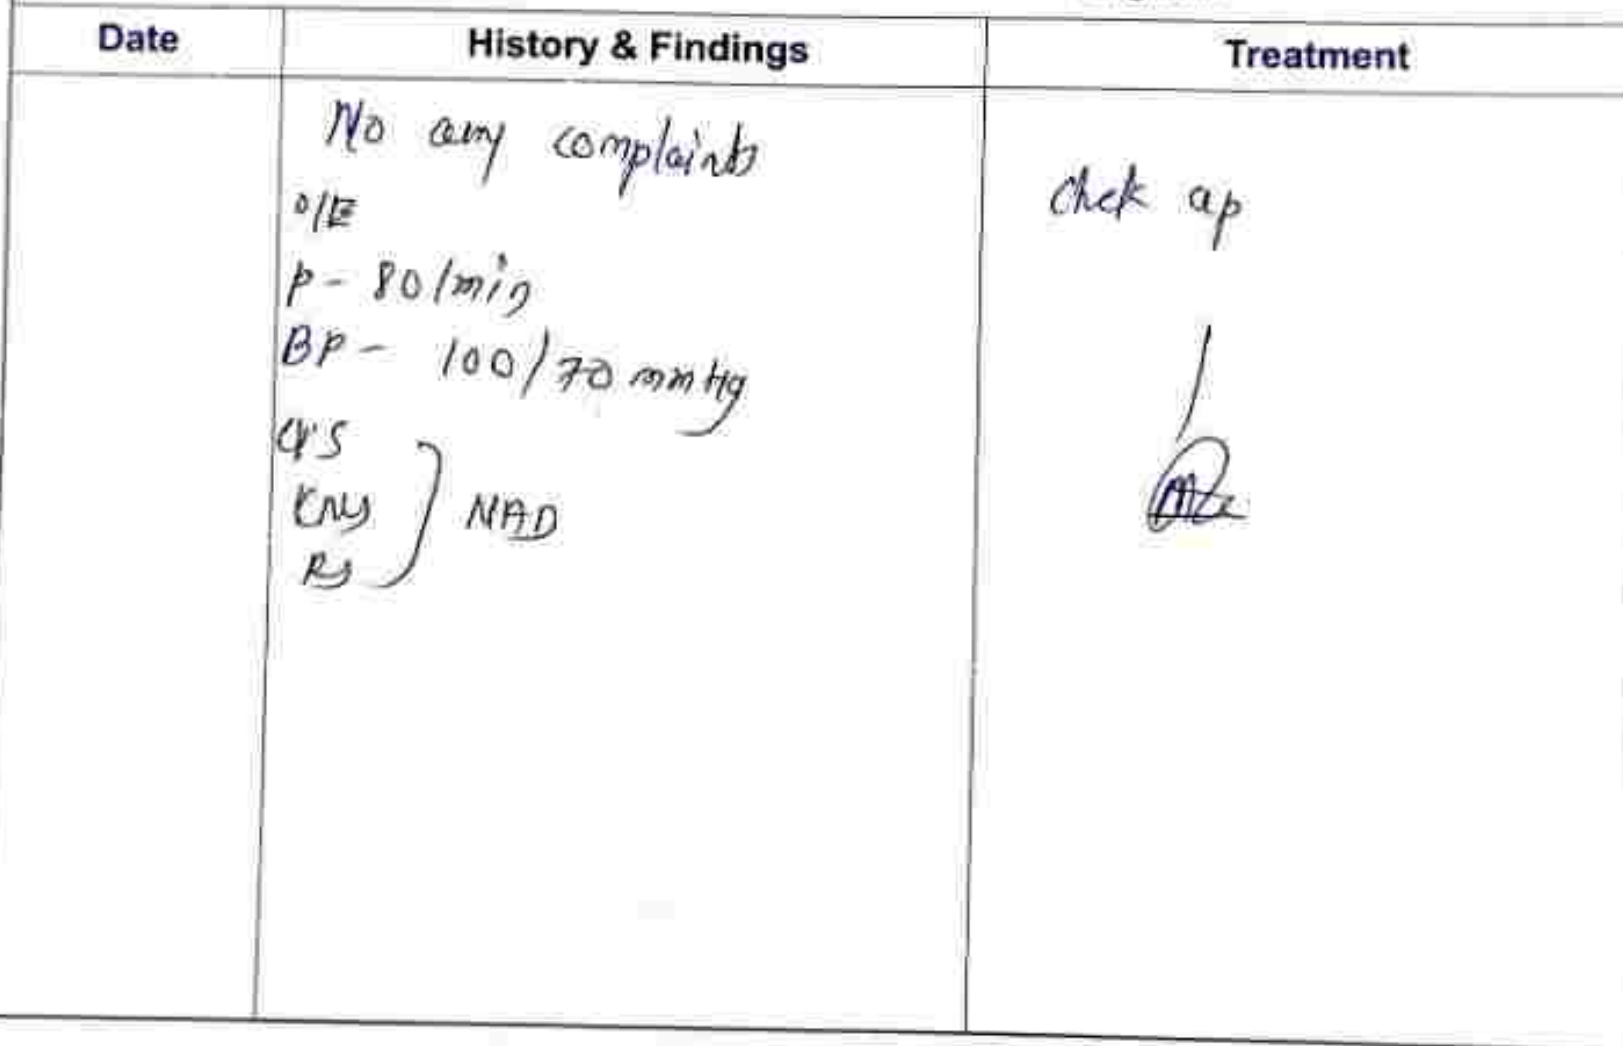 Date History & Findings Treatment
No any complaints
Chek up
O/E
P - 80/min
BP - 100/70 mmHg
CVS
CNS NAD
RS